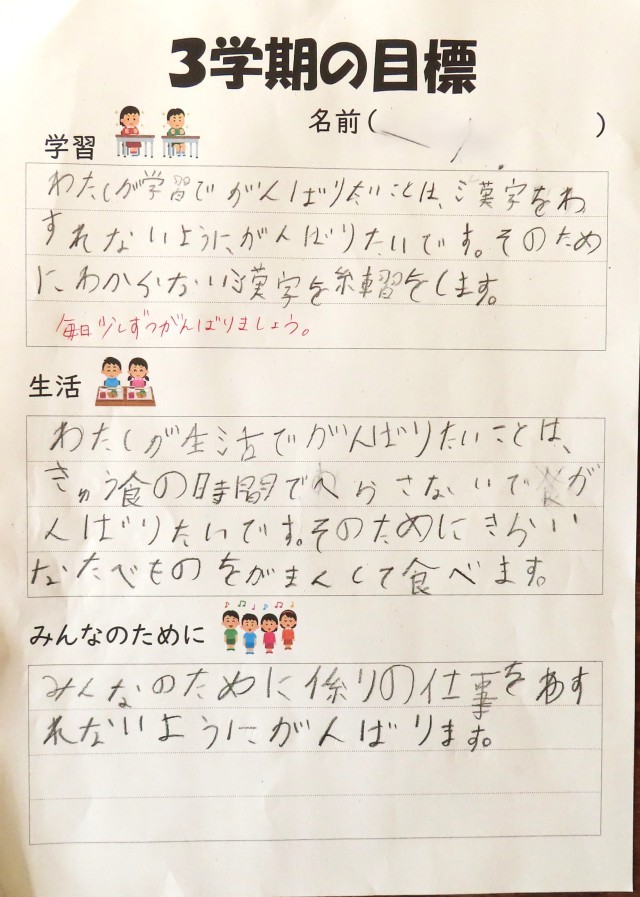 3学期の目標
名前( )
学習
わたしが学習でがんばりたいことは、漢字をわ
すれないように、がんばりたいです。そのため
にわからない漢字を練習をします。
毎日少しずつがんばりましょう。
生活
わたしが生活でがんばりたいことは、
きゅう食の時間でへらさないでが
んばりたいです。そのためにきらい
なたべものをがまんして食べます。
みんなのために
みんなのために係りの仕事をわす
れないようにがんばります。